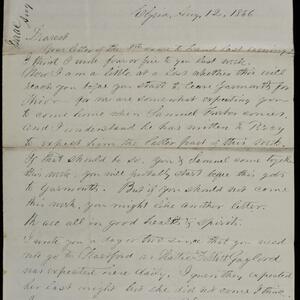 Elgin, Aug 12, 1866
Dearest
Your letter of the 8th came to hand last evening
I think I wrote four or five to you last week.
Now I am a little at a loss whether this will
reach you before you start to leave Yarmouth for
for we are somewhat expecting you
to come home when Samuel comes,
and I understand he has written to
to expect him the latter part of this week.
If that should be so, you & Samuel come together
this week, you will probably start before this gets
to Yarmouth. But if you should not come
this week, you might like another letter.
We are all in good health & spirits.
I wrote you a day or two since that you need
not go to Hartford as Gaylord
was expected here daily. I guess they expected
her last night but she did not come I think